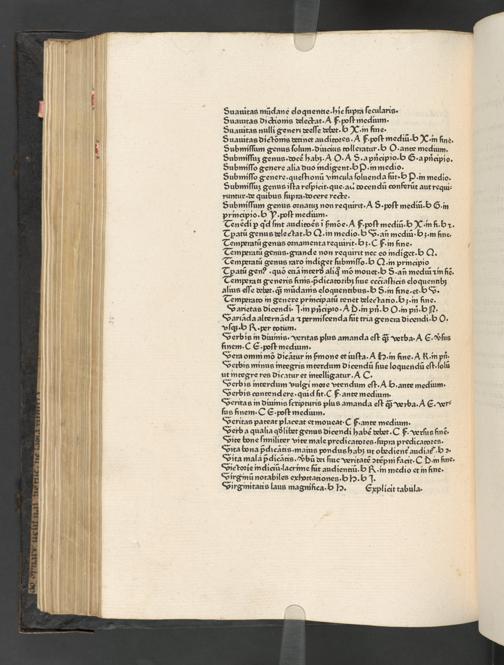 Suauitas mūdane eloquentie. hēc supra secularis.
Suauitas dictionis delectat. A F. post medium.
Suauitas nulli generi deesse debet. b X. in fine.
Suauitas dictōnis detinet auditores. A F. post mediū. b X. in fine.
Submissum genus solum. diucius tolleratur. b O. ante medium.
Submissū genus. docē habꝫ. A O. A S. a pñcipio. b G. a pñcipio.
Submisso genere alia duo indigent. b P. in medio.
Submisso genere. questionū vincula soluenda sūt. b P. in medio.
Submissū genus ista respicit. que. aū docendū conferūt aut requi-
runtur. de quibus supra. docere recte.
Submissum genus ornatū non requirit. A S. post mediū. b G. in
principio. b Y. post medium.
Tenēdi p qd sint auditores ī smōe. A F. post mediū. b X. in fi. b z.
Tpatū genus delectat. b Q. in medio. b V. añ mediū. b z. in fine.
Temperatū genus ornamenta requirit. b z. C F. in fine.
Temperatū genus. grande non requirit nec eo indiget. b Q.
Temperatū genus raro indiget submisso. b Q. in principio
Tpatū gen⁹. quō etiā interdū aliqñ mō mouet. b S. añ mediū ⁊ in fiē.
Temperati generis finis. pdicatoribꝫ siue ecclasticis eloquentibꝫ
alius esse debet. q̄ mūdanis eloquentibus. b S. in fine. et. b V.
Temperato in genere principatū tenet delectatio. b z. in fine.
Varietas dicendi. I. in pñcipio. A D. in pñ. b O. in pñ. b N.
Variāda alternāda ⁊ permiscenda sūt tria genera dicendi. b O.
vsqꝫ. b R. per totum.
Verbis in diuinis. veritas plus amanda est q̄ verba. A E. vsus
finem. C E. post medium.
Vera omni mō dicātur in smone et iusta. A H. in fine. A K. in pñ.
Verbis minus integris interdum dicendū siue loquendū est. solū
ut integre res dicatur et intelligatur. A C.
Verbis interdum vulgi more vtendum est. A b. ante medium.
Verbis contendere. quid sit. C F. ante medium.
Veritas in diuinis scripturis plus amanda est q̄ verba. A E. ver-
sus finem. C E. post medium.
Veritas pateat placeat et moueat. C F. ante medium.
Verba qualia qdlibet genus dicendi habē debet. C F. versus finē.
Vite bone similiter vite male predicatores. supra predicatores.
Vita bona pdicātis. maius pondus habꝫ ut obedient̄ audiat̄. b z.
Vita mala pdicātis. vbū dei siue veritatē ⁊tēpni facit. C D. in fine.
Victorie indiciū. lacrime sūt audientiū. b R. in medio et in fine.
Virginū notabiles exhortationes. b H. b I.
Virginitatis laus magnifica. b H. Explicit tabula.